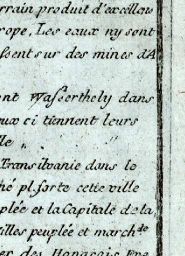 rrain produit d'excellens
rope, Les eaux ny sont
ssent sur des mines d'A
ont Wasserthely dans
ux ci tiennent leurs
lle "
Transilvanie dans lo
hé pl. forte cette ville
plée et la Capitale de la
illes peuplée et march.de
des Hongrois